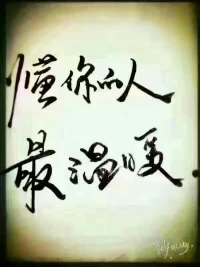 懂你的人
最温暖